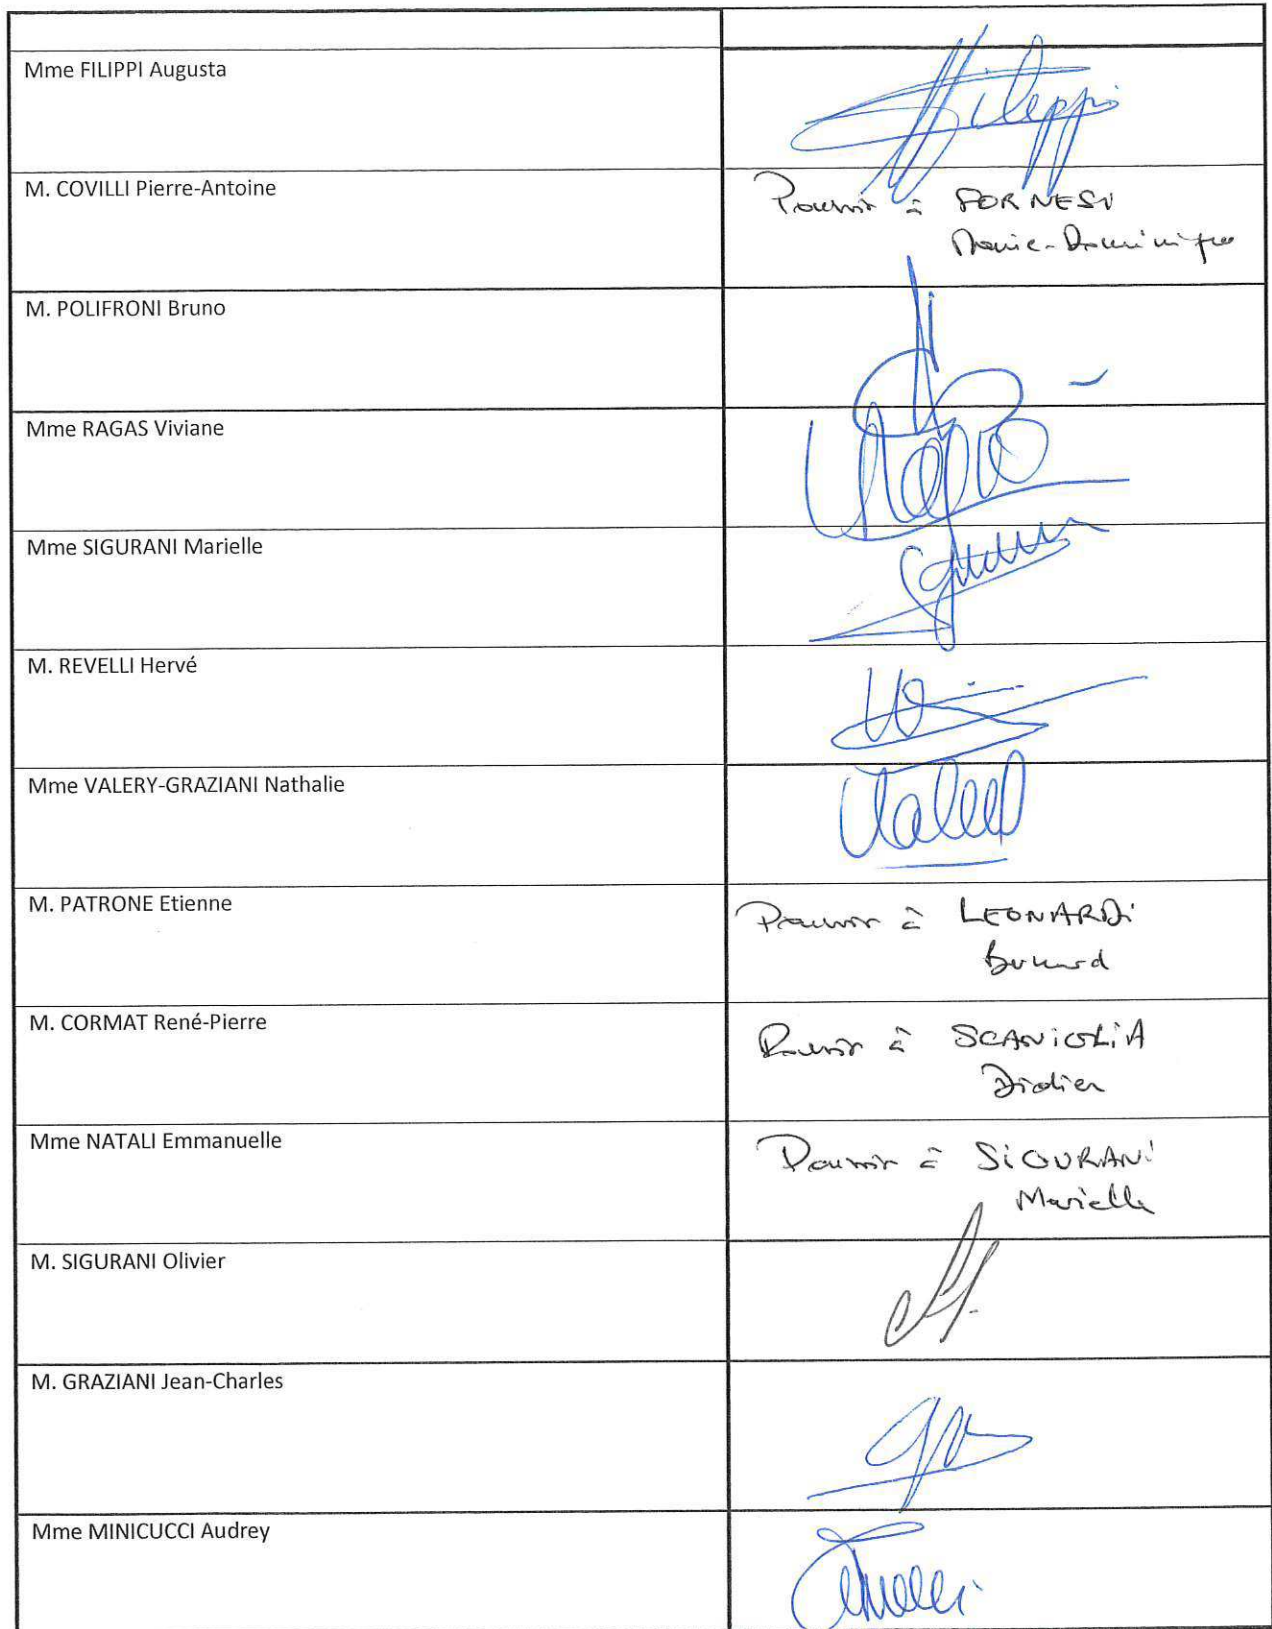 Mme FILIPPI Augusta
Filippi
M. COVILLI Pierre-Antoine
Pouvoir à FORNESI
Marie-Dominique
M. POLIFRONI Bruno
Mme RAGAS Viviane
Mme SIGURANI Marielle
M. REVELLI Hervé
Mme VALERY-GRAZIANI Nathalie
M. PATRONE Etienne
Pouvoir à LEONARDi
Bernard
M. CORMAT René-Pierre
Pouvoir à SCANiGLiA
Didier
Mme NATALI Emmanuelle
Pouvoir à SiGURANi
Marielle
M. SIGURANI Olivier
M. GRAZIANI Jean-Charles
Mme MINICUCCI Audrey